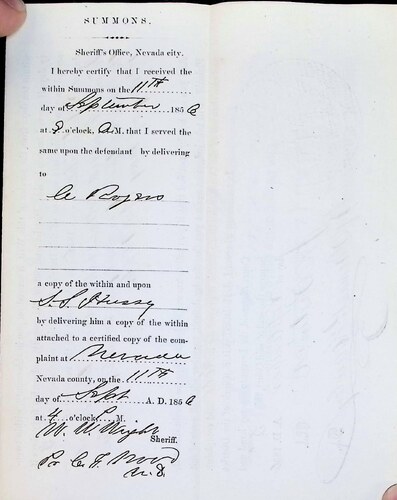 SUMMONS.
Sheriff's Office, Nevada city.
I hereby certify that I received the
within Summons on the 11TH
day of September 1856
at 9 o'clock, A.M. that I served the
same upon the defendant by delivering
to
A Rogers
a copy of the within and upon
S. S. Hussy
by delivering him a copy of the within
attached to a certified copy of the com-
plaint at Nevada
Nevada county, on the 11TH
day of Sept A. D. 1856
at 4 o'clock P. M.
W. W. Wright
Sheriff.
Wood